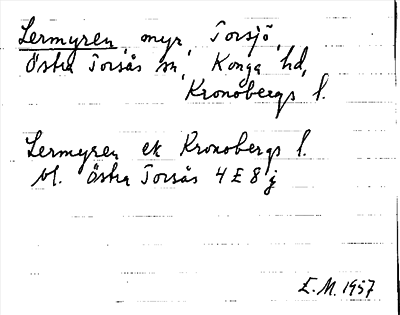 Lermyren, myr, Torsjö,
Östra Torsås sn, Konga hd,
Kronobergs l.
Lermyren ek Kronobergs l.
bl. Östra Torsås 4 E 8 j
E.M. 1957